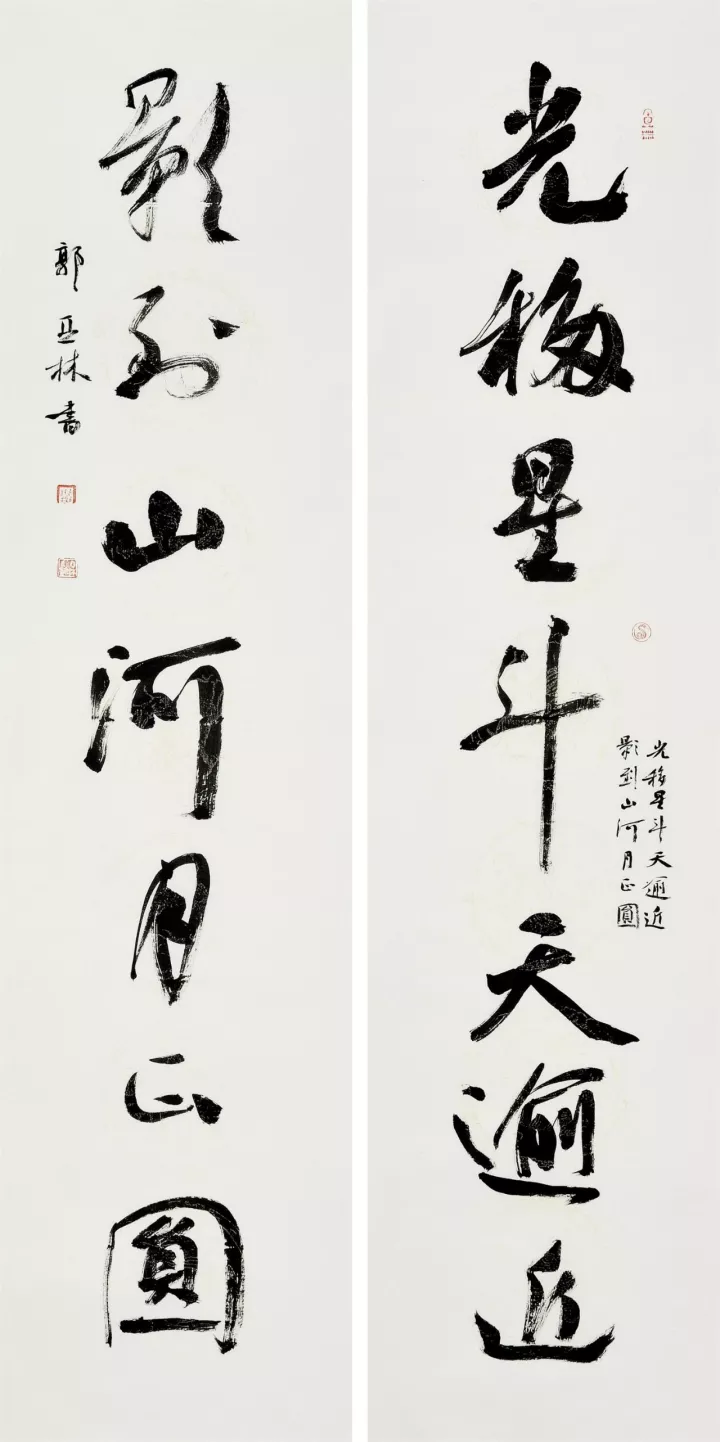 光移星斗天逾近
光移星斗天逾近
影到山河月正圓
影到山河月正圓
郭亞林書